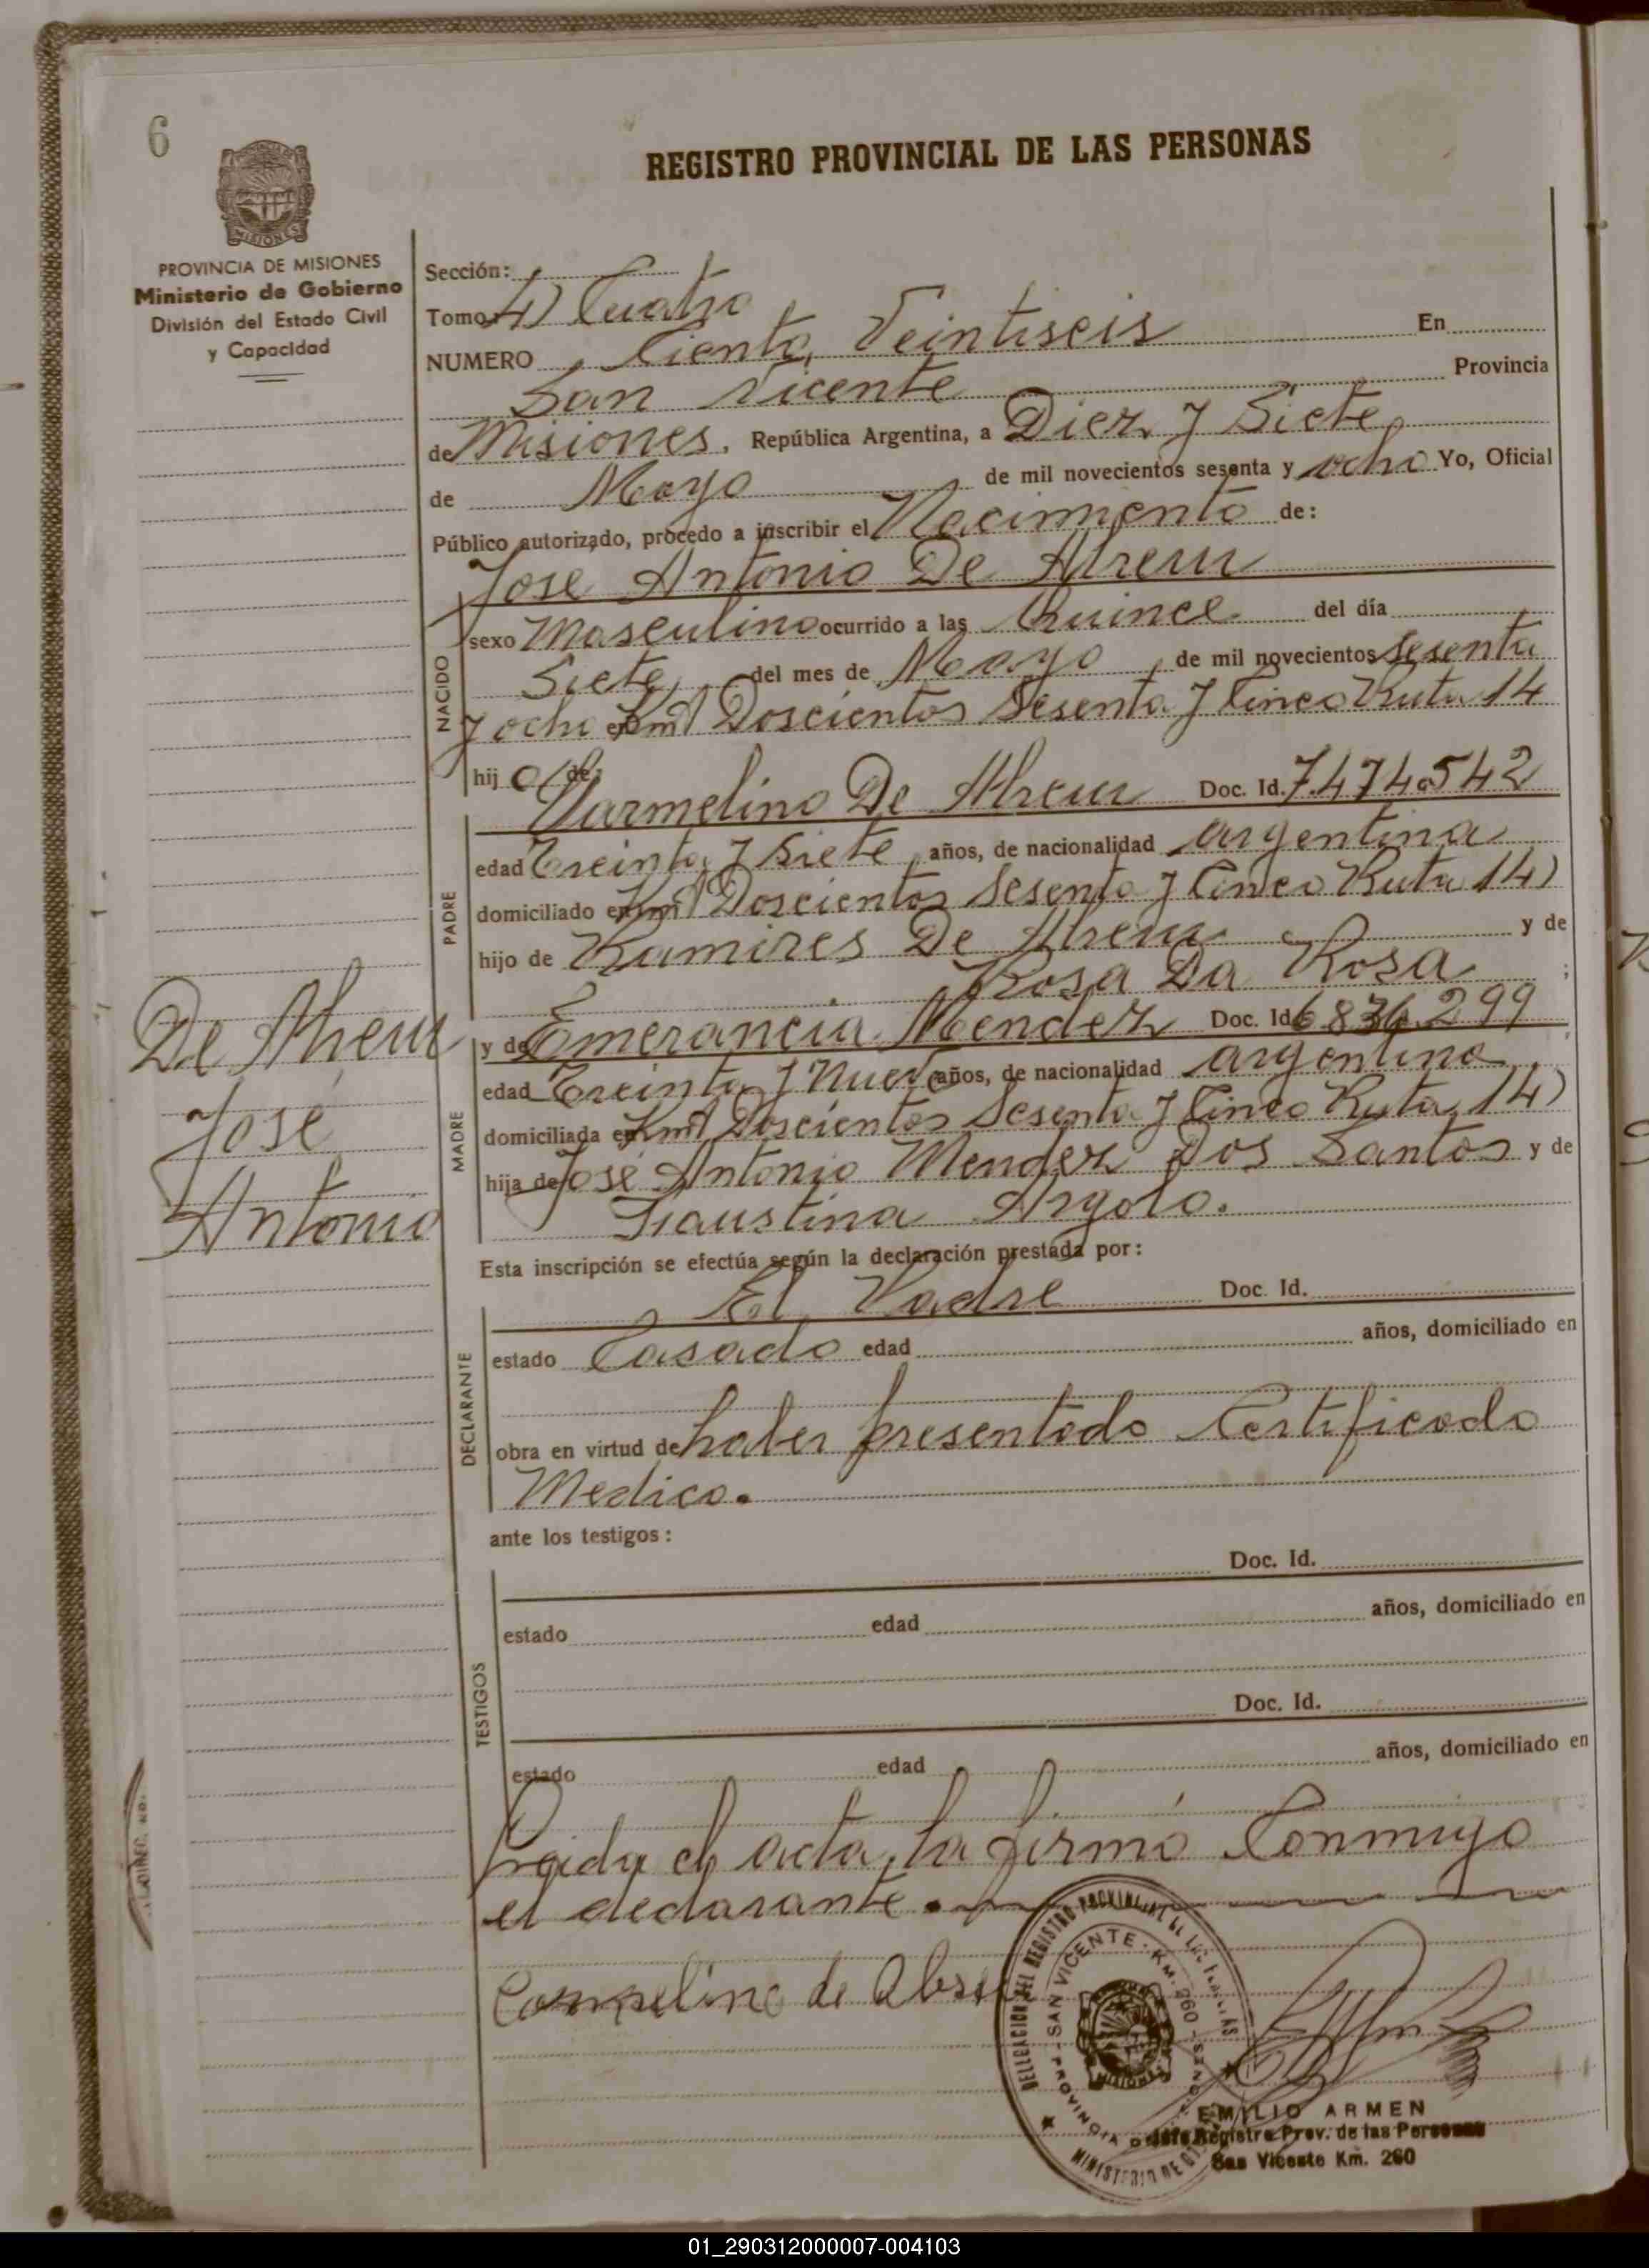 6
REGISTRO PROVINCIAL DE LAS PERSONAS
MISIONES
PROVINCIA DE MISIONES
Ministerio de Gobierno
División del Estado Civil
y Capacidad
Sección:
Tomo: 4) Cuatro
NUMERO Ciento Veintiseis En
San Vicente Provincia
de Misiones. República Argentina, a Diez y Siete
de Mayo de mil novecientos sesenta y ocho Yo, Oficial
Público autorizado, procedo a inscribir el Nacimiento de:
José Antonio De Abreu
NACIDO
sexo Masculino ocurrido a las Quince del día
Siete del mes de Mayo de mil novecientos sesenta
y ocho en Km Doscientos Sesenta y Cinco Ruta 14
hijo de:
PADRE
De Abreu Doc. Id. 7.474.542
edad Treinta y Siete años, de nacionalidad argentina
domiciliado en Km Doscientos Sesenta y Cinco Ruta 14)
hijo de Ramires De Abreu y de
Rosa Da Rosa ;
MADRE
y de Emerancia Mendez Doc. Id 6.836.299
edad Treinta y Nueve años, de nacionalidad argentina
domiciliada en Km Doscientos Sesenta y Cinco Ruta 14)
hija de José Antonio Mendez Dos Santos y de
Faustina Argolo.
De Abreu
José
Antonio
Esta inscripción se efectúa según la declaración prestada por:
DECLARANTE
El Padre Doc. Id.
estado Casado edad años, domiciliado en
obra en virtud de haber presentado Certificado
Medico.
ante los testigos:
TESTIGOS
Doc. Id.
estado edad años, domiciliado en
Doc. Id.
estado edad años, domiciliado en
Leida el acta, la firmó Conmigo
el declarante.
de Abreu
DELEGACION DEL REGISTRO PROVINCIAL DE LAS PERSONAS
SAN VICENTE - KM. 260 -
PROVINCIA DE MISIONES
MISIONES
MINISTERIO DE
EMILIO ARMEN
Jefe Registro Prov. de las Personas
San Vicente Km. 260
01_290312000007-004103